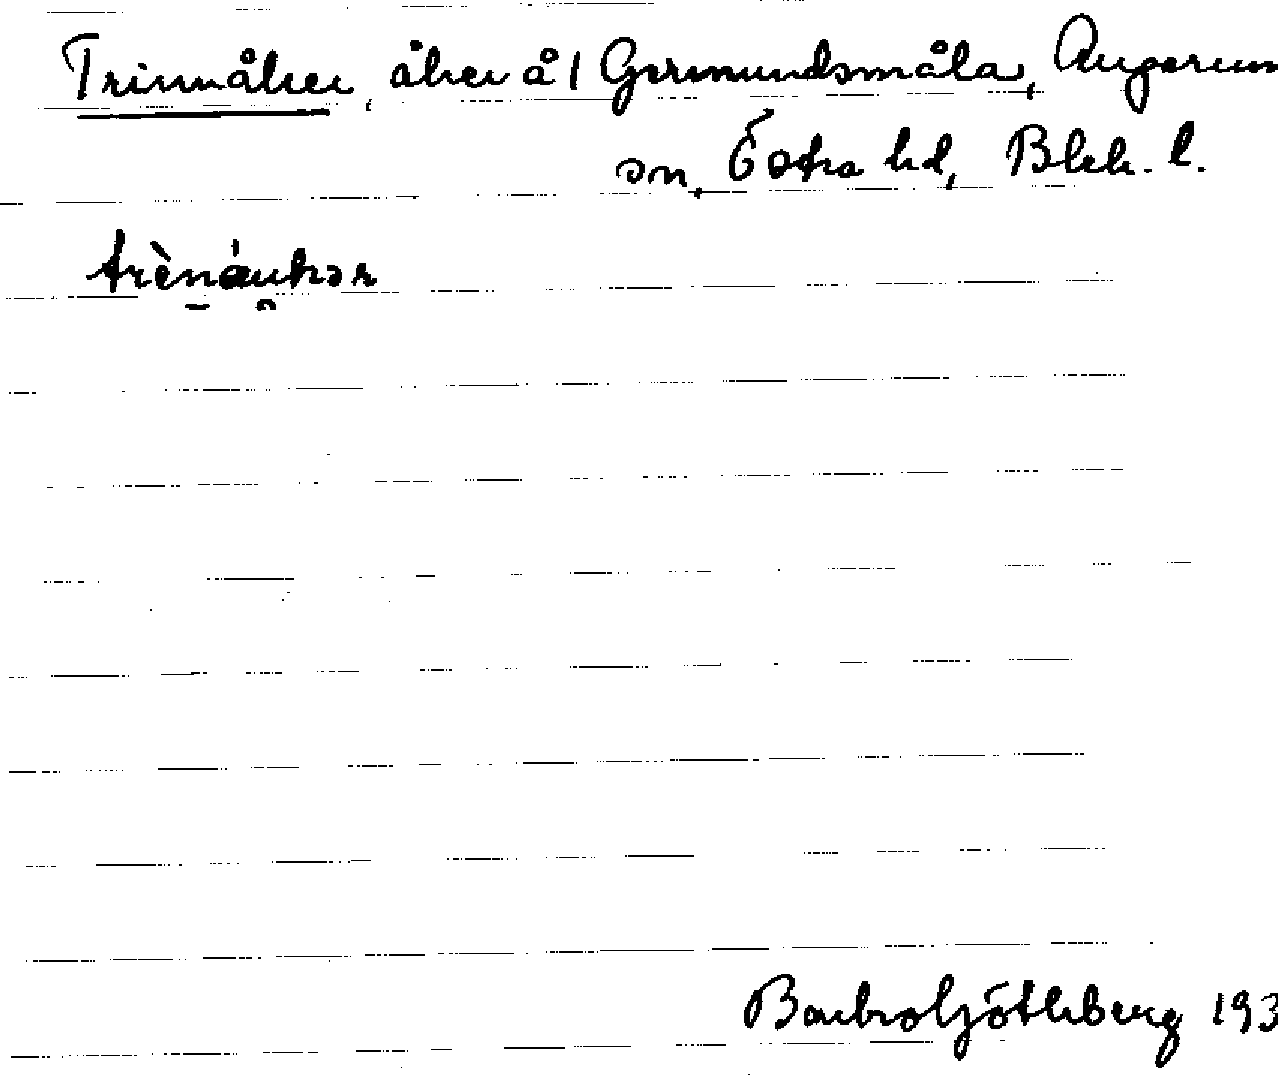 Trinnåker, åker å 1 Germundsmåla, Augerum
sn, Östra hd, Blek. l.
trènáukər
Barbro Götleberg 193